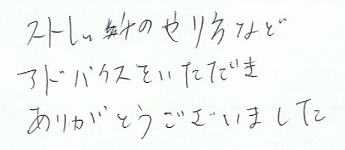 ストレッチのやり方など
アドバイスをいただき
ありがとうございました